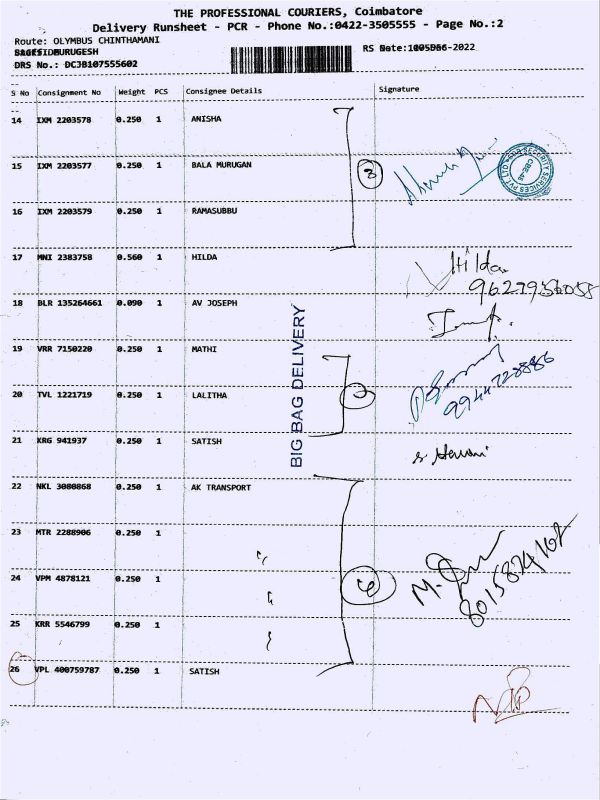 THE PROFESSIONAL COURIERS, Coimbatore
Delivery Runsheet - PCR - Phone No.:0422-3505555 - Page No.:2
Route: OLYMBUS CHINTHAMANI
DRS No.: DCJB107555602
S No Consignment No Weight PCS Consignee Details Signature
14 IXM 2203578 0.250 1 ANISHA
15 IXM 2203577 0.250 1 BALA MURUGAN
3
16 IXM 2203579 0.250 1 RAMASUBBU
17 MNI 2383758 0.560 1 HILDA
Hilda
18 BLR 135264661 0.090 1 AV JOSEPH
BIG BAG DELIVERY
19 VRR 7150220 0.250 1 MATHI
20 TVL 1221719 0.250 1 LALITHA
9944728886
21 KRG 941937 0.250 1 SATISH
22 NKL 3080868 0.250 1 AK TRANSPORT
23 MTR 2288906 0.250 1
24 VPM 4878121 0.250 1
25 KRR 5546799 0.250 1
26 VPL 400759787 0.250 1 SATISH